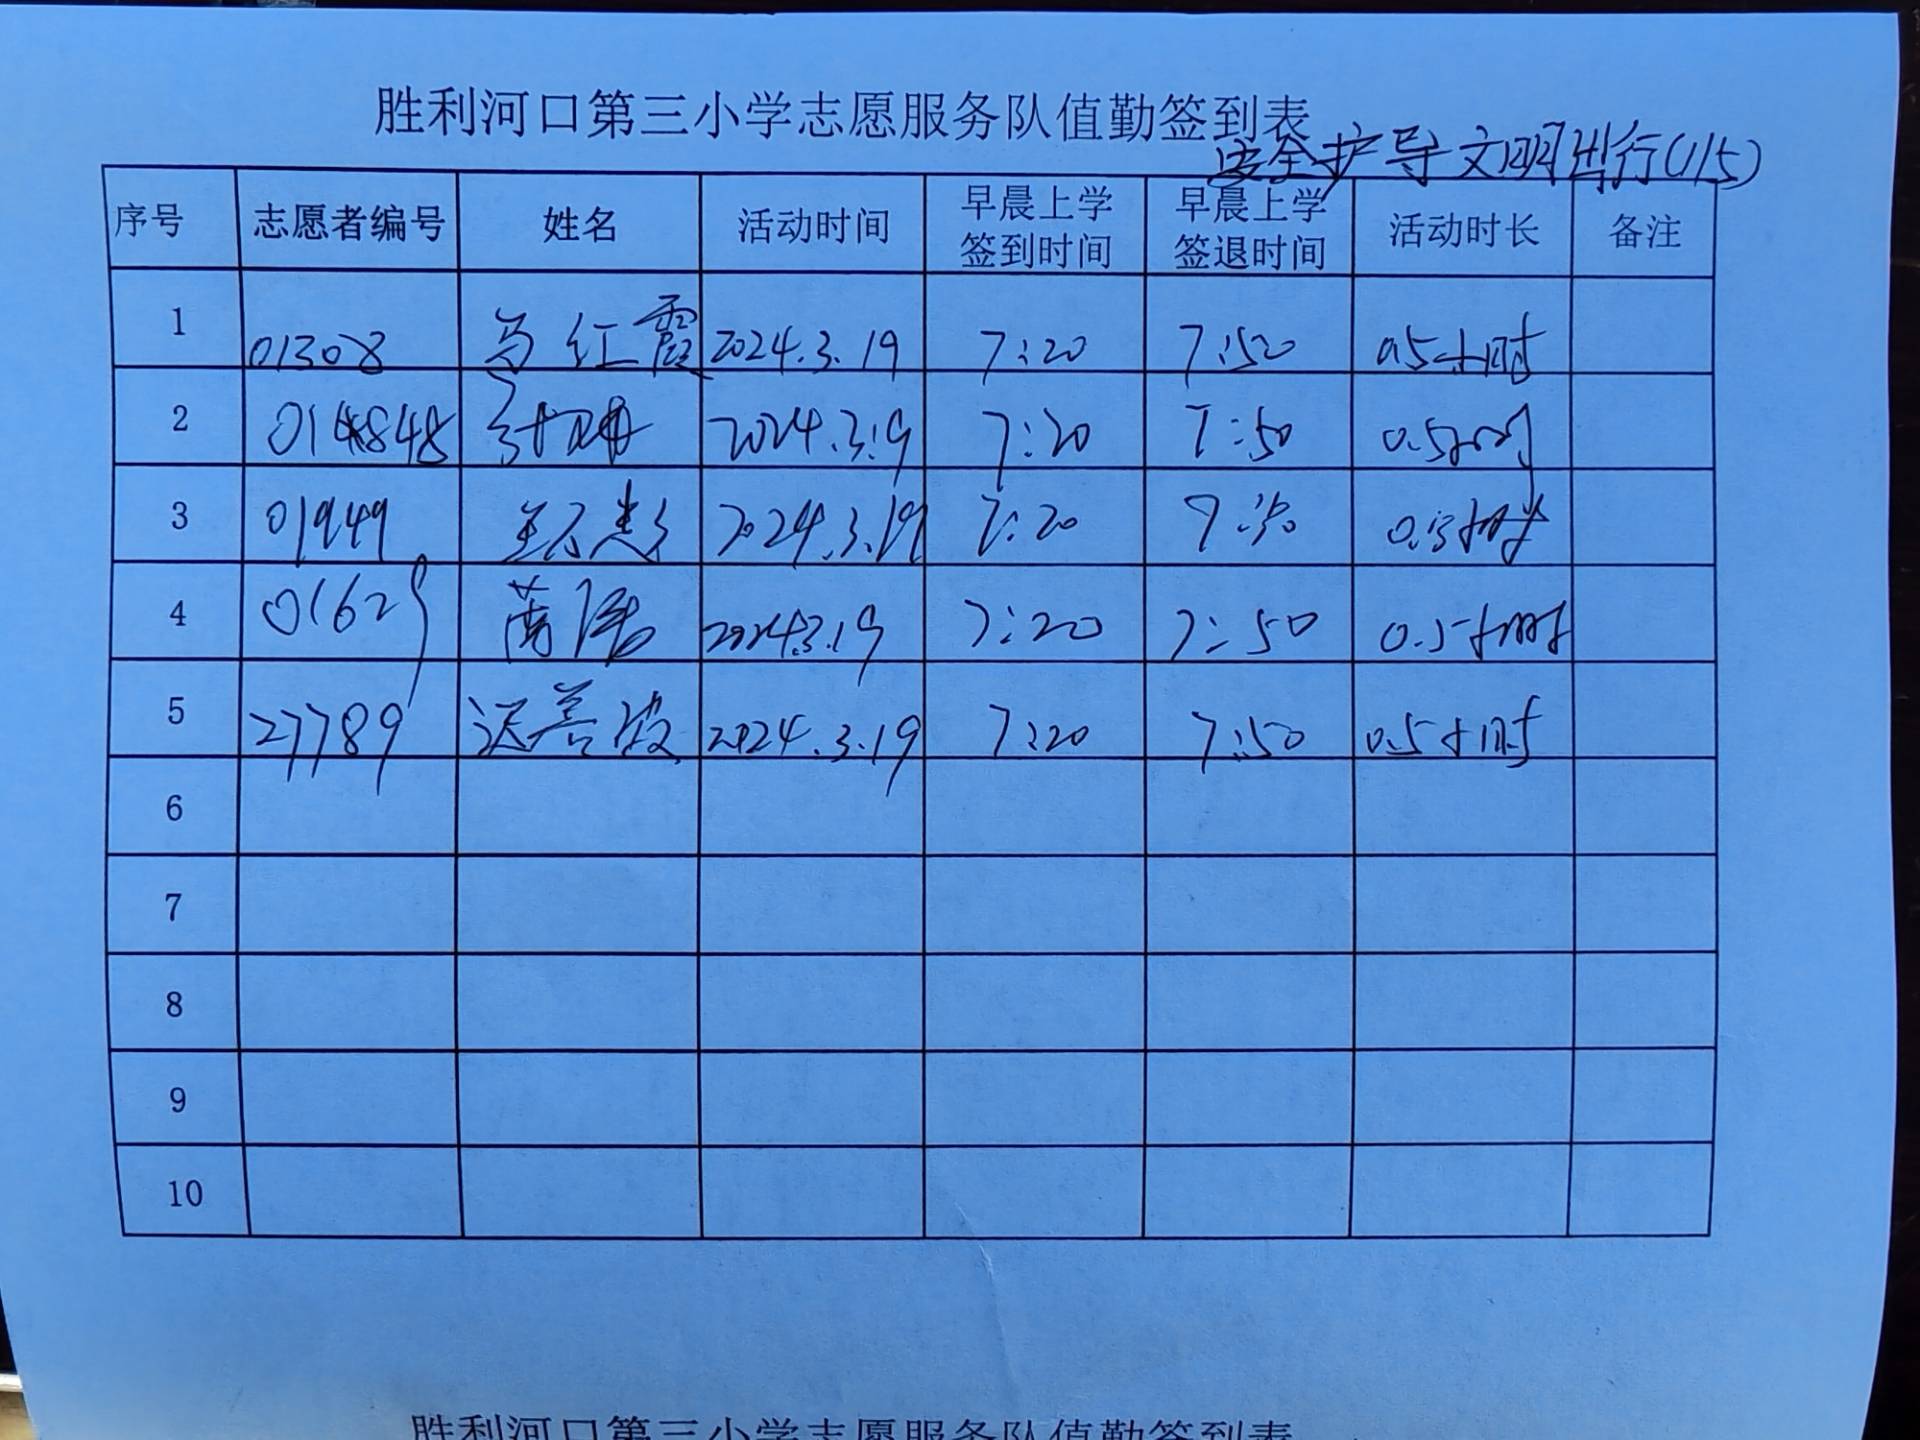 胜利河口第三小学志愿服务队值勤签到表
安全护导文明出行(115)
序号 志愿者编号 姓名 活动时间 早晨上学签到时间 早晨上学签退时间 活动时长 备注
1 01308 马红霞 2024.3.19 7:20 7:50 0.5小时
2 2024.3.19 7:20 7:50 0.5小时
3 01949 2024.3.19 7:20 7:50 0.5小时
4 01629 2024.3.19 7:20 7:50 0.5小时
5 27789 迟善波 2024.3.19 7:20 7:50 0.5小时
6
7
8
9
10
胜利河口第三小学志愿服务队值勤签到表